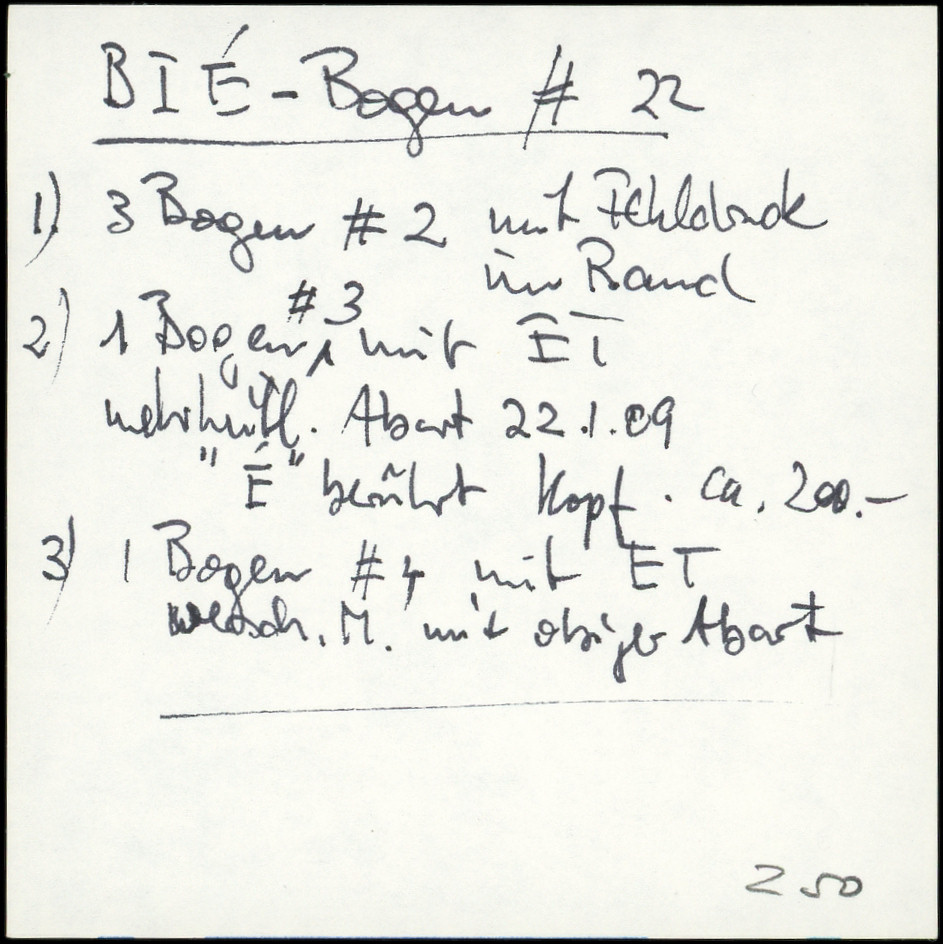 BIÉ-Bogen # 22
1) 3 Bogen #2 mit Fehldruck
im Rand
2) 1 Bogen #3 mit ET
Abart 22.1.09
"É" berührt Kopf. ca. 200.-
3) 1 Bogen #4 mit ET
M. mit obiger Abart
250